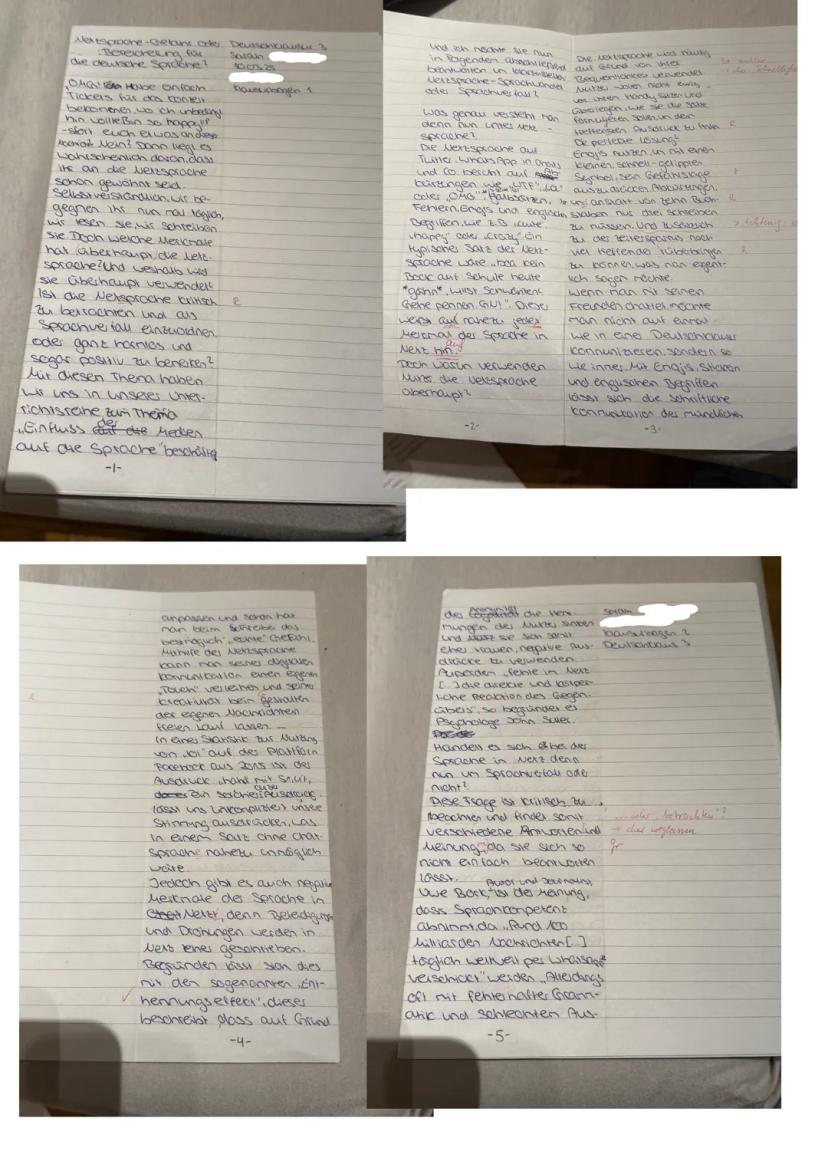 Netzsprache-Gefahr oder
Bereicherung für
die deutsche Sprache?
Deutschklausur 3
10.03.25
Klausurbogen 1
„OMG! Habe einfach
Tickets für das Konzert
bekommen wo ich unbedingt
hin wollte. Bin so happy!!"
-stört euch etwas an dieser
Nein? Dann liegt es
wahrscheinlich daran, dass
ihr an die Netzsprache
schon gewöhnt seid.
Selbstverständlich, wir be-
gegnen ihr nun mal täglich,
wir lesen sie, wir schreiben
sie. Doch welche Merkmale
hat überhaupt die Netz-
sprache? Und weshalb wird
sie überhaupt verwendet?
Ist die Netsprache kritisch
R
zu betrachten und als
Sprachverfall einzuordnen
oder ganz harmlos und
sogar positiv zu
Mit diesen Thema haben
wir uns in unserer Unter-
richtsreihe zum Thema
„Einfluss der Medien
auf die Sprache" beschäftig
-1-
und ich möchte sie nun
in folgenden abschließend
beantworten in
Netzsprache-Sprachwandel
oder Sprachverfall?
Was genau versteht man
denn nun unter Netz-
sprache?
Die Netzsprache auf
Twitter, WhatsApp in Chats
und Co. besteht auf Ab-
kürzungen wie „WTF", „LOL"
oder „OMG", Halbsätzen,
Fehlern, Emojis und englischen
Begriffen, wie z.B. „cute",
„happy" oder „crazy". Ein
typischer Satz der Netz-
sprache wäre „boa kein
Bock auf Schule heute
*gähn*, willst schwänzen?
Gehe pennen GN!". Dieser
weist auf nahezu jedes
Merkmal der Sprache in
Netz hin.
auf
Doch warum verwenden
Nutzer die Netzsprache
überhaupt?
-2-
Die Netzsprache wird häufig
auf Grund von ihrer
Bequemlichkeit verwendet.
Nutzer wollen nicht ewig
vor ihren Handy sitzen und
überlegen, wie sie die Sätze
formulieren sollen um den
treffensten Ausdruck zu finden.
R
Die perfekte Lösung?
Emojis nutzen, um mit einen
kleinen, schnell-getippten
Symbol, sein Gefühlslage
auszudrücken. Abkürzungen,
um anstatt von zehn Buch-
R
staben nur drei schreiben
zu müssen. Und zusätzlich
zu der Zeitersparnis noch
viel treffender rüberbringen
R
zu können, was man eigent-
lich sagen möchte.
Wenn man mit seinen
Freunden chattet, möchte
man nicht auf einmal
wie in einer Deutschklausur
kommunizieren, sondern so
wie immer. Mit Emojis, Stickern
und englischen Begriffen
lässt sich die schriftliche
Kommunikation der mündlichen
-3-
anpassen und schon hat
man beim Schreiben das
bestmöglich „echte" Gefühl.
Mithilfe der Netzsprache
kann man seiner digitalen
Kommunikation einen eigenen
„Touch" verleihen und seiner
R
Kreativität beim gestalten
der eigenen Nachrichten
freien Lauf lassen.
In einer Statistik zur Nutzung
von „lol" auf der Plattform
Facebook aus 2015 ist der
Ausdruck „haha" mit 51,4%,
Ein solcher Ausdruck
lässt uns unkompliziert unsere
Stimmung ausdrücken, was
in einem Satz ohne Chat-
sprache nahezu unmöglich
wäre.
Jedoch gibt es auch negative
Merkmale der Sprache in
Netz, denn Beleidigungen
und Drohungen werden in
Netz eher geschrieben.
Begründen lässt sich dies
mit den sogenannten „Ent-
hemmungseffect", dieser
beschreibt dass auf Grund
-4-
der Anonymität die Hem-
mungen der Nutzer sinken
und sie sich somit
eher trauen, negative Aus-
drücke zu verwenden.
Außerdem „fehle im Netz
[..] die direkte und körper-
liche Reaktion des Gegen-
übers", so begründet es
Psychologe John Suler.
Klausurbogen 2
Deutschklausur 3
Handelt es sich bei der
Sprache in Netz denn
nun um Sprachverfall oder
nicht?
Diese Frage ist kritisch zu
beachten und findet somit
„...oder betrachten"?
verschiedene Antworten und
→ eher weglassen
Meinungen, da sie sich so
gr
nicht einfach beantworten
lässt.
Uwe Bork, Autor und Journalist, ist der Meinung,
dass Sprachkompetenz
abnimmt, da „Rund 100
Milliarden Nachrichten [..]
täglich weltweit per WhatsApp
verschickt" werden „Allerdings
oft mit fehlerhafter Gramm-
atik und schlechten Aus-
-5-